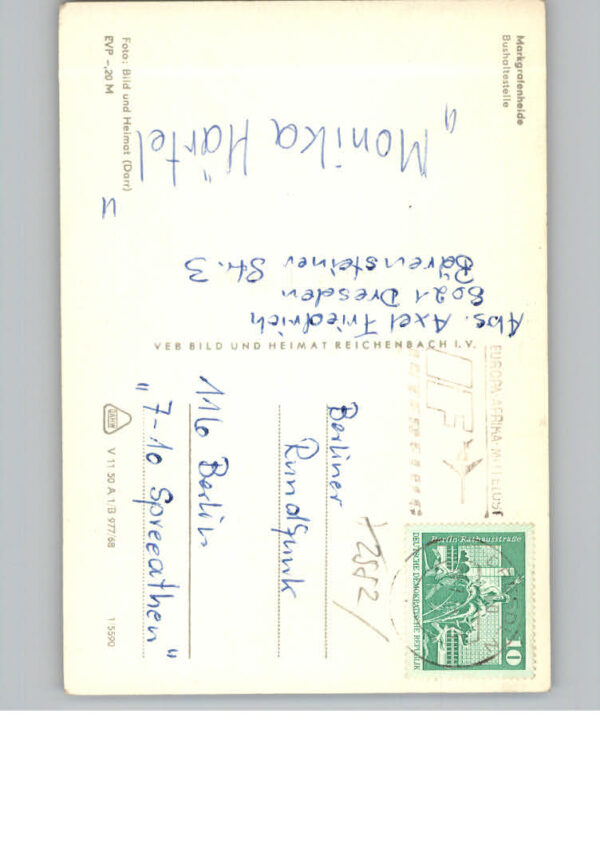 Markgrafenheide
Bushaltestelle
"Monika Härtel"
Abs. Axel Friedrich
8021 Dresden
Bärensteiner Str. 3
Foto: Bild und Heimat (Darr)
EVP -,20 M
VEB BILD UND HEIMAT REICHENBACH I.V.
EUROPA·AFRIKA·MITTELOST
IF
Berlin-Rathausstraße
DEUTSCHE DEMOKRATISCHE REPUBLIK
10
2552
Berliner
Rundfunk
116 Berlin
"7-10 Spreeathen"
V 11 50 A 1/B 977/68
1 5590